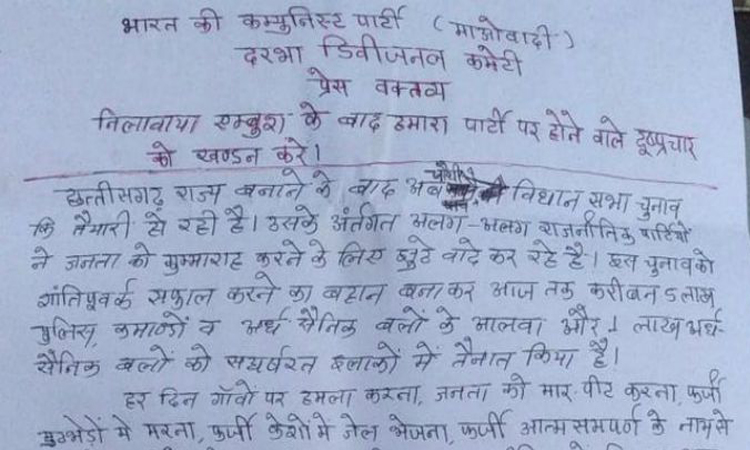 भारत की कम्युनिस्ट पार्टी (माओवादी)
दरभा डिवीजनल कमेटी
प्रेस वक्तव्य
निलावाया एम्बुश के बाद हमारा पार्टी पर होने वाले दूष्प्रचार
को खण्डन करे।
छत्तीसगढ़ राज्य बनाने के बाद अब चौथी विधान सभा चुनाव
कि तैयारी हो रही है। उसके अंतर्गत अलग-अलग राजनीतिक पार्टियों
ने जनता को गुम्माराह करने के लिए झुटे वादे कर रहे है। इस चुनाव को
शांतिपूवर्क सफाल करने का बहान बनाकर आज तक करीबन 5 लाख
पुलिस, कमाण्डों व अर्ध सैनिक बलों के आलवा और 1 लाख अर्ध-
सैनिक बलों को संघर्षरत इलाकों में तैनात किया है।
हर दिन गाँवों पर हमला करना, जनता को मार पीट करना, फर्जी
मुठभेड़ों मे मरना, फर्जी केशों में जेल भेजना, फर्जी आत्म समपर्ण के नाम से